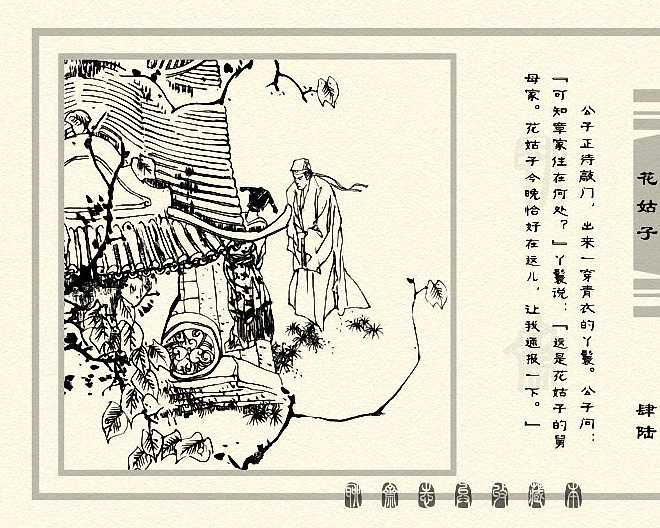 公子正待敲门，出来一穿青衣的丫鬟。公子问：
『可知章家住在何处？』丫鬟说：『这是花姑子的舅
母家。花姑子今晚恰好在这儿，让我通报一下。』
花姑子
肆陆
聊斋志异收藏本